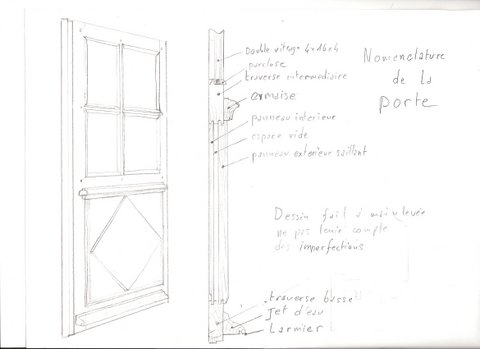 Double vitrage 4x16x4
parclose
traverse intermédiaire
cimaise
panneau intérieur
espace vide
panneau extérieur saillant
Nomenclature
de la
porte
Dessin fait à main levée
ne pas tenir compte
des imperfections
traverse basse
Jet d'eau
Larmier